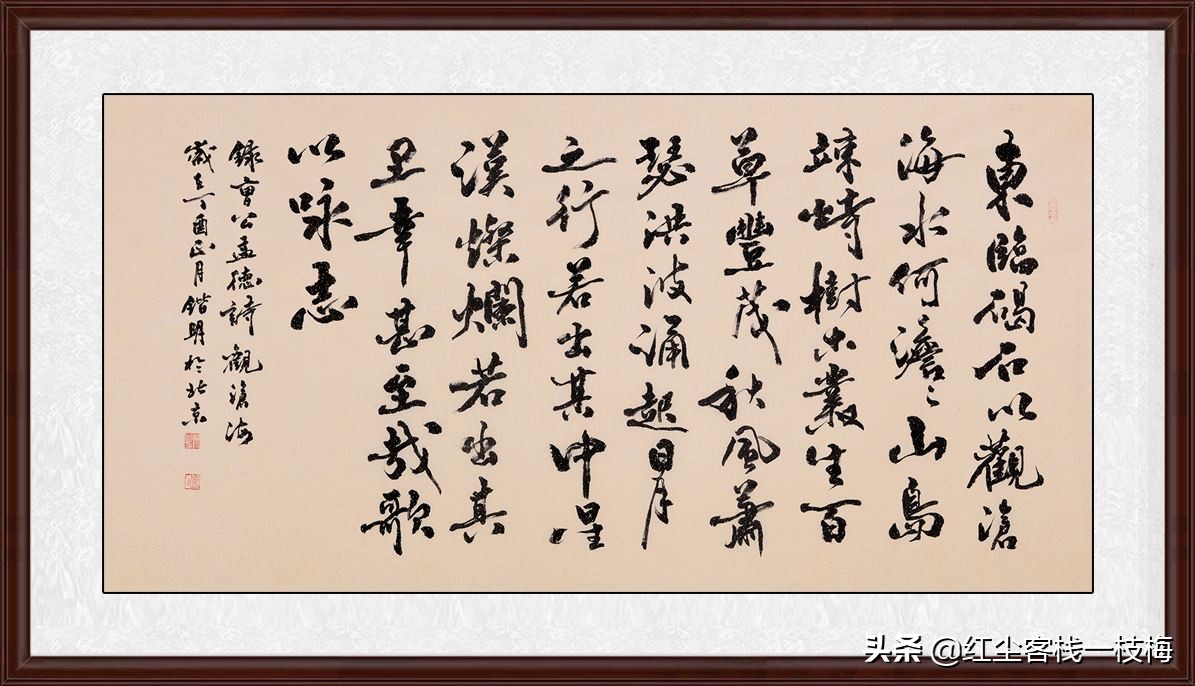 東臨碣石以觀滄
海水何澹〻山島
竦峙樹木叢生百
草豐茂秋風蕭
瑟洪波涌起日月
之行若出其中星
漢燦爛若出其
里幸甚至哉歌
以咏志
錄曹公孟德詩觀滄海
歲在丁酉正月鍇明於北京
头条 @红尘客栈一枝梅